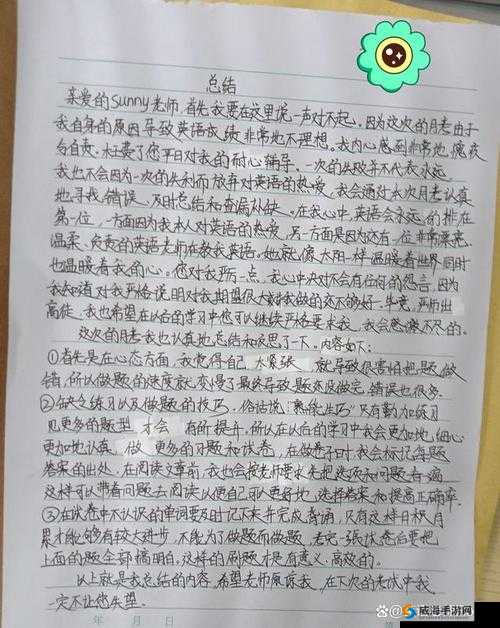 总结
亲爱的Sunny老师,首先我要在这里说一声对不起,因为这次的月考由于
我自身的原因导致英语成绩非常地不理想。我内心感到非常地愧疚
与自责,枉费了您平日对我的耐心辅导,一次的失败并不代表永远。
我也不会因为一次的失利而放弃对英语的热爱,我会通过本次月考认真
地寻找错误、及时总结和查漏补缺。在我心中,英语会永远的排在
第一位,一方面因为我本人对英语的热爱,另一方面是因为还有一位非常漂亮、
温柔、负责的英语老师在教我英语。她就像太阳一样温暖着世界同时
也温暖着我的心。您对我严厉一点,我心中央对不会有任何的怨言,因为
我知道对我严格说明对我期望很大对我做的还不够好,毕竟,严师出
高徒,我也希望在以后的学习中您可以继续严格要求我,我会感激不尽的。
这次的月考我也认真地总结和反思了一下。内容如下:
①首先是在心态方面,我觉得自己太紧张,就导致很害怕把题做
错,所以做题的速度就变慢了最终导致题充没做完,错误也很多。
②缺乏练习以及做题的技巧,俗话说"熟能生巧"只有勤加练习
见更多的题型,才会有所提升,所以在以后的学习中我会更加地细心
更加地认真,做更多的习题和试卷,在做卷子时我会标记每题
答案的出处,在阅读文章前,我也会按老师要求先把选项和问题看一遍
这样可以带着问题去阅读以便自己可以更好地选择答案和提高正确率。
③在试卷中不认识的单词要及时记下来并完成背诵,只有这样日积月
累才能够有较大进步,不能为了做题而做题,看完一张试卷后要把
上面的题全部搞明白,这样的刷题才是有意义、高效的。
以上就是我总结的内容,希望老师原谅我,在下次的考试中我
一定不让您失望。
年 月 日
威海手游网